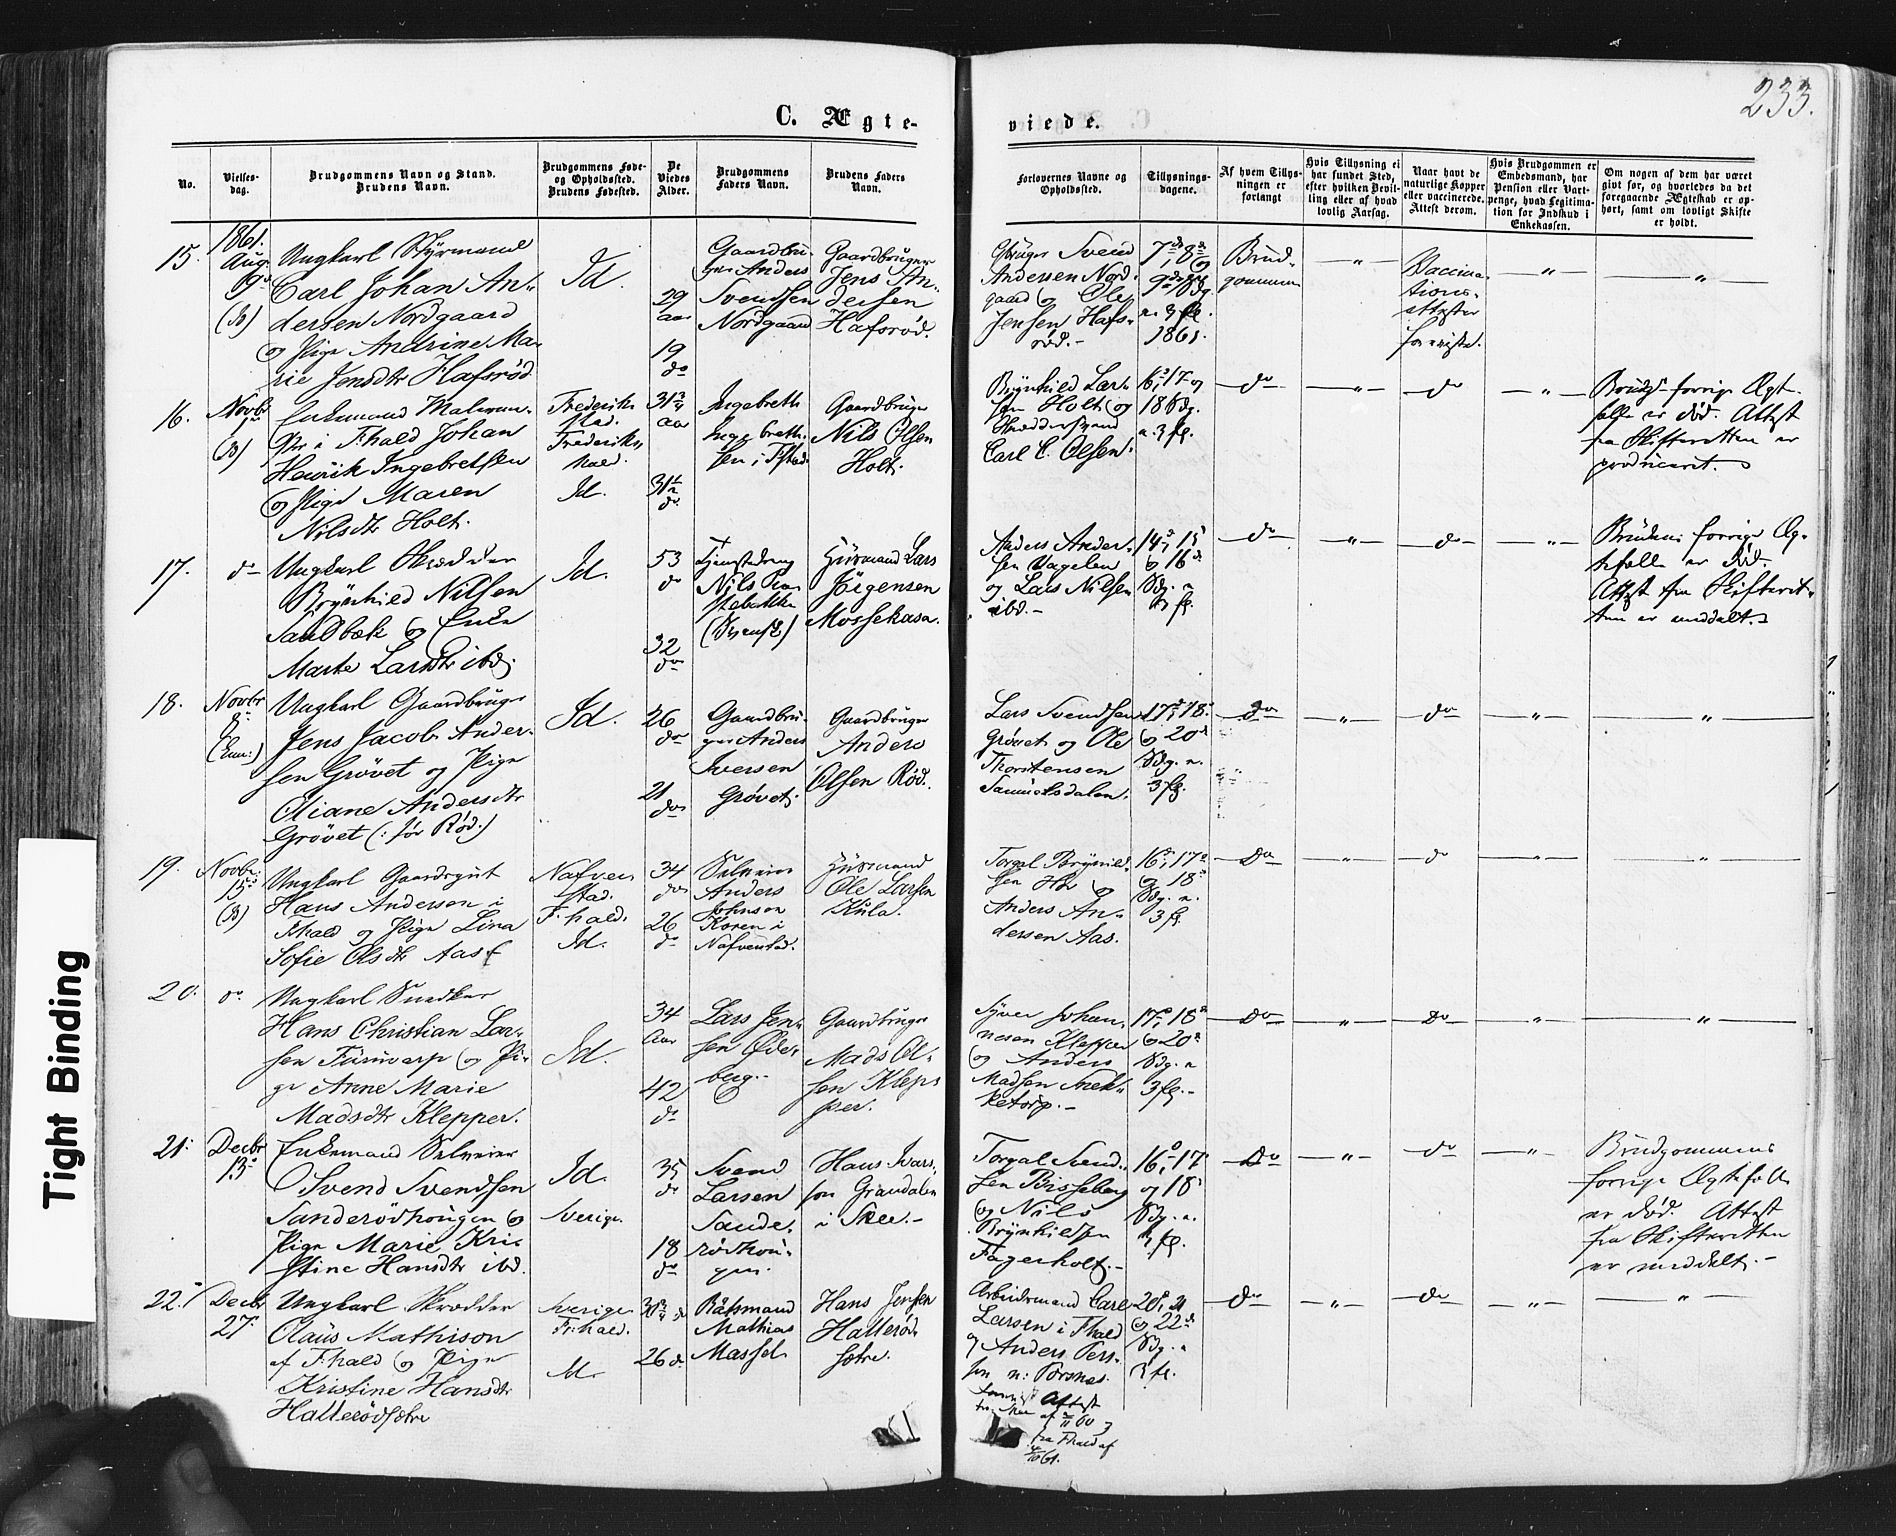 233.
C. Ægte-
viede.
No.
Vielses-
dag.
Brudgommens Navn og Stand.
Brudens Navn.
Brudgommens Føde-
og Opholdssted.
Brudens Fødested.
De
Viedes
Alder.
Brudgommens
Faders Navn.
Brudens Faders
Navn.
Forlovernes Navne og
Opholdssted.
Tillysnings-
dagene.
Af hvem Tillys-
ningen er
forlangt
Hvis Tillysning ei
har fundet Sted,
efter hvilken Bevil-
ling eller af hvad
lovlig Aarsag.
Naar havt de
naturlige Kopper
eller vaccinerede.
Attest derom.
Hvis Brudgommen er
Embedsmand, har
Pension eller Vart-
penge, hvad Legitima-
tion for Indskud i
Enkekassen.
Om nogen af dem har været
givt før, og hvorledes da det
foregaaende Ægteskab er op-
hørt, samt om lovligt Skifte
er holdt.
15.
1861.
Aug.
9
(B)
Ungkarl Styrmand
Carl Johan An-
dersen Nordgaard
og Pige Andrine Ma-
rie Jensdtr Hafsrød
Id.
29
aar
19
do
Gaardbru-
ger Anders
Svendsen
Nordgaard
Gaardbruger
Jens An-
dersen
Hafsrød.
Gbruger Svend
Andersen Nord-
gaard og Ole
Jensen Hafs-
rød.-
7, 8 og
9 Sdg.
a. 3 fl.
1861.
Brud-
gommen
-"-
Vaccina-
tions-
attester
foreviste.
-"-
-"-
16.
Novbr
1
(B)
Enkemand Malersven-
 i F:hald Johan
Henrik Ingebretsen
og Pige Maren
Nilsdtr Holt.
Frederik-
stad.
Frederiks-
hald.
Id.
31 3/4
aar
31 1/2
do
Ingebreth
Ingebreth-
sen i Fstad
Gaardbruger
Nils Olsen
Holt.
Brynhild Lar-
sen Holt og
Skræddersvend
Carl C. Olsen.
16, 17 og
18 Sdg.
a. 3 fl.
do
-"-
do
-"-
Brudg. forrige Ægte-
fælle er død. Attest
fra Skifteretten er
produceret.
17.
do
Ungkarl Skrædder
Brynhild Nilsen
Sandbæk og Enke
Marte Larsdtr ibd.
Id.
53
do
32
do
Tjenestedreng
Nils
(Svensk)
Huusmand Lars
Jörgensen
Mossekasa.
Anders Ander-
sen Vagelen
og Lars Nilsen
ibd.-
14, 15
og 16
Sdg. a
3 fl.
do
-"-
do
-"-
Brudens forrige Æg-
tefælle er død.
Attest fra Skifteret-
ten er meddelt.
18.
Novbr
8
Ungkarl Gaardbruger
Jens Jacob Ander-
sen Grövet og Pige
Eliane Andersdtr
Grövet (: før Rød.)
Id.
26
do
21
do
Gaardbru-
ger Anders
Iversen
Grövet.
Gaardbruger
Anders
Olsen Rød.
Lars Svendsen
Grövet og Ole
Thorstensen
Samuelsdalen.
17, 18
og 20
Sdg. a.
3 fl.
do
-"-
do
-"-
"
19.
Novbr
15
(B)
Ungkarl Gaardsgut
Hans Andersen i
F:hald og Pige Lina
Sofie Olsdtr Aas
Nafven-
stad.
F:hald.
Id.
34
do
26
do
Selveier
Anders
Johnsen
Koren i
Nafvenstad.
Huusmand
Ole Larsen
Kula.
Torgal Brynild-
sen Holt og
Anders An-
dersen Aas.
16, 17
og 18
Sdg. a.
3 fl.
do
-"-
do
-"-
"
20.
do
Ungkarl Snedker
Hans Christian Lar-
sen Torp og Pi-
ge Anne Marie
Madsdtr Klepper.
Id.
34
Aar
42
do
Lars Jen-
sen Øde-
berg.-
Gaardbruger
Mads Ol-
sen Klep-
per.
Syver Johan-
nesen Klepper
og Anders
Madsen Snek-
ketorp.-
17, 18
og 20
Sdg. a
3 fl.-
do
-"-
do
"
"
21.
Decbr
13
Enkemand Selveier
Svend Svendsen
Sanderödhougen og
Pige Marie Kri-
stine Hansdtr ibd.
Id.
Sverige.
35
do
18
do
Svend
Larsen
Sande-
rødhou-
gen.
Hans Ivar-
sen Grandalen
i Skee.-
Torgal Svend-
sen Bisseberg
og Nils
Brynhildsen
Fagerholt.-
16, 17
og 18
Sdg. a.
3 fl.
do
-"-
do
-"-
Brudgommens
forrige Ægtefælle
er død. Attest
fra Skifteretten
er meddelt.-
22.
Decbr
27
Ungkarl Skrædder
Olaüs Mathison
af F:hald og Pige
Kristine Hansdtr
Hallerødsætre
Sverige
F:hald.
Id.
31 3/4 do
26 do
Baadsmand
Mathias
Massel
Hans Jensen
Hallerød-
sætre.
Arbeidsmand Carl
Larsen i F:hald
og Anders Pers-
sen n: Brsnes.
20, 21
og 22
Sdg. a
3 fl.
do
-"-
do
-"-
"
 Attest
 af 60
fra F:hald af
61.
Tight Binding